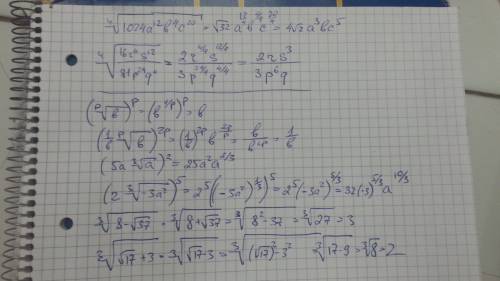 ⁴√(1024a¹²b⁴c²⁰) = √32 a^(12/4) b^(4/4) c^(20/4) = 4√2 a³bc⁵
⁴√(16r⁴s¹²/81p²⁴q⁴) = 2r^(4/4) s^(12/4) / 3p^(24/4) q^(4/4) = 2rs³/3p⁶q
(ᵖ√b)ᵖ = (b^(1/p))ᵖ = b
(1/b ᵖ√b)²ᵖ = (1/b)²ᵖ b^(2p/p)
(5a ³√a)² = 25a²a^(2/3)
(2 ³√(-3a²))⁵ = 2⁵((-3a²)^(1/3))⁵ = 2⁵(-3a²)^(5/3) = 32(-3)^(5/3) a^(10/3)
³√(8-√37) · ³√(8+√37) = ³√(8²-37) = ³√27 = 3
³√(√17+3) · ³√(√17-3) = ³√((√17)²-3²) ³√(17-9) = ³√8 = 2